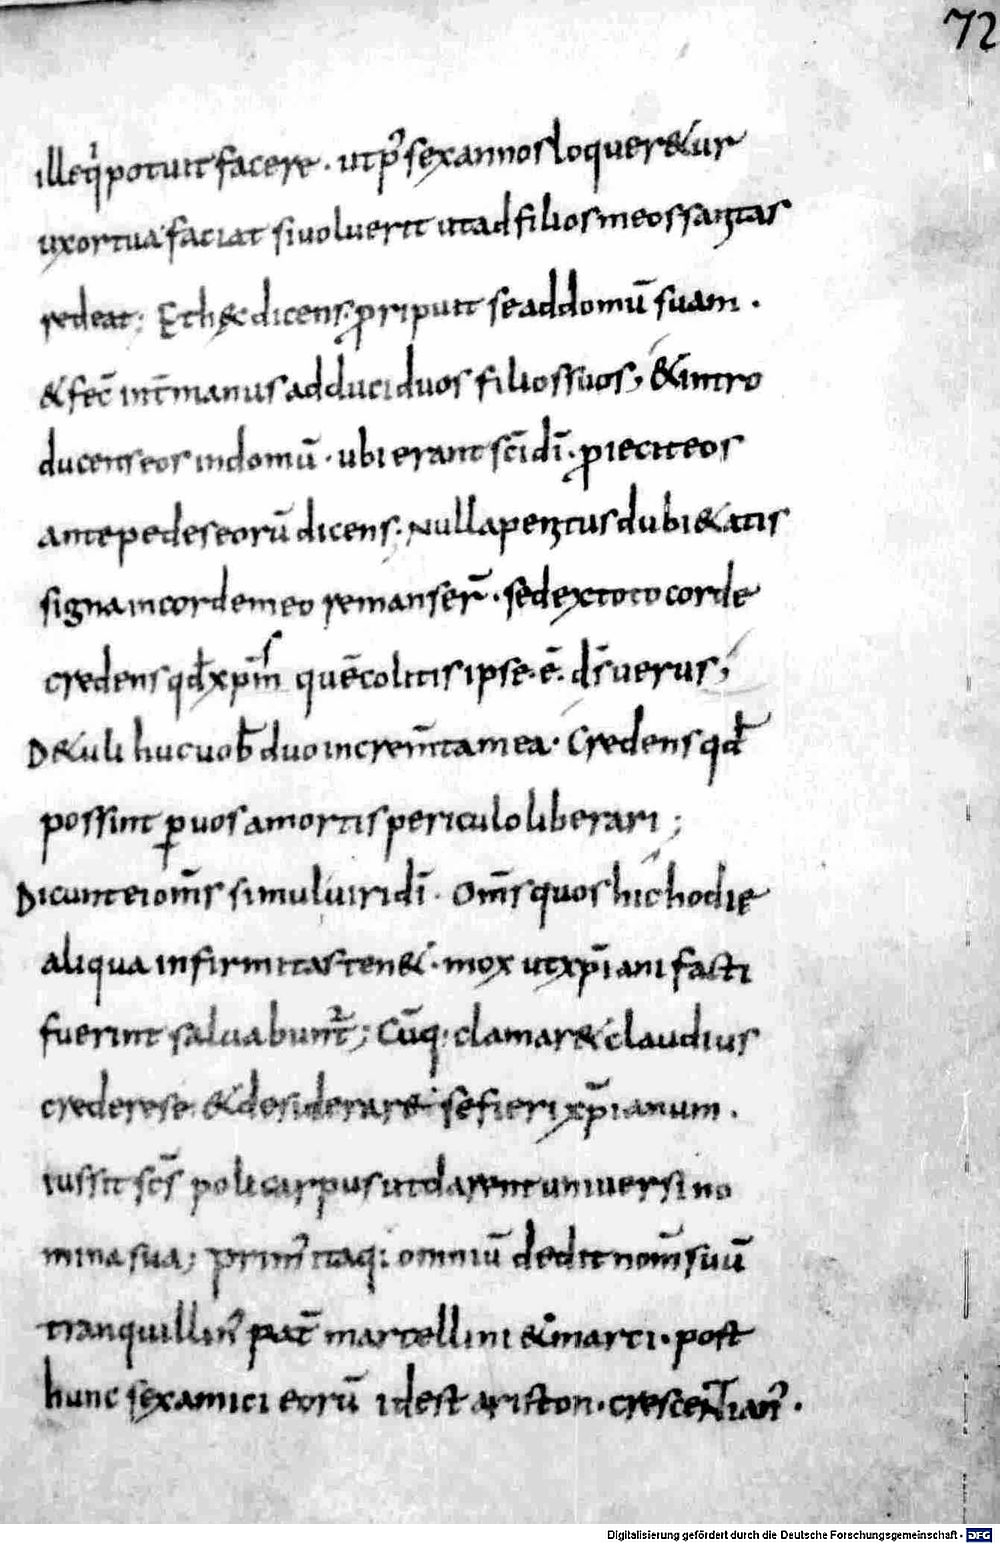 72
ille qͥ potuit facere · ut pꝰ sex annos loquer&ur
uxor tua faciat si voluerit ut ad filios meos sanitas
redeat; Et h&c dicens· ꝓripuit se ad domū suam ·
& fec̄ int̄ manus adduci duos filios suos; & intro
ducens eos in domū · ubi erant sc̄i dī · ꝓiecit eos
ante pedes eorū dicens· Nulla penitus dubi&atis
signa in corde meo remanser̄ · sed ex toto corde
credens qd̄ xp̄m quē colitis ipse · ē · ds̄ verus;
D&uli huc vob̄ duo increm̄ta mea · Credens qd̄
possint ꝑ vos a mortis periculo liberari;
Dicunt ei om̄s simul viri dī · Om̄s quos hic hodie
aliqua infirmitas ten& · mox ut xp̄iani facti
fuerint salvabunt̄; Cūq· clamar& claudius
credere se· & desiderar& se fieri xp̄ianum ·
iussit sc̄s policarpus ut darent universi no
mina sua; primꝰ itaq· omniū dedit nom̄ suū
tranquillinꝰ pat̄ marcellini & marci · post
hunc sex amici eorū idest ariston · crescentianꝰ ·
Digitalisierung gefördert durch die Deutsche Forschungsgemeinschaft - DFG